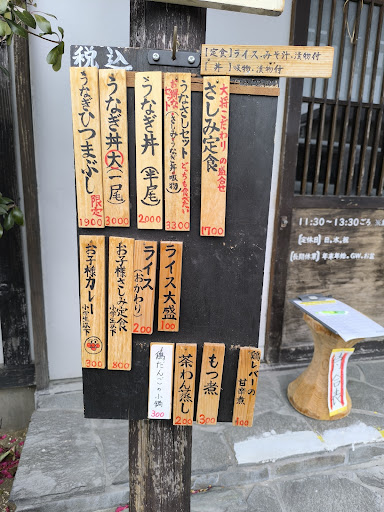 税込
【定食】ライス、みそ汁、漬物付
【丼】吸物、漬物付
うなぎひつまぶし
限定
1900
うなぎ丼(大)一尾
3000
うなぎ丼(半尾)
2000
うなさしセット
3300
大将こだわりの盛合せ
さしみ定食
1700
お子様カレー
小学生以下
300
お子様さしみ定食
小学生以下
800
ライス(おかわり)
200
ライス大盛
100
鶏たんごの小鍋
300
茶わん蒸し
200
もつ煮
300
鶏レバーの甘辛煮
400
11:30~13:30ごろ
【定休日】日、水、祝
【長期休業】年末年始、GW、お盆